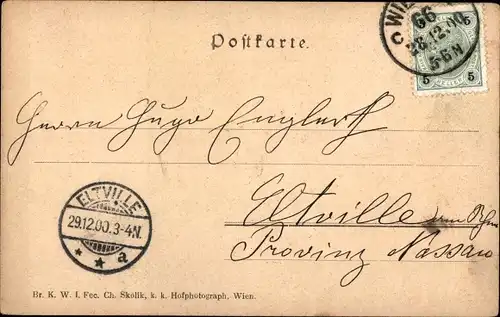 WI
66
28.12.00
5-6N
C
5 5
HELLER
5 5
Postkarte.
Herrn Hugo Englert
ELTVILLE
29.12.00.3-4N.
* * a
Eltville am Rhein
Provinz Nassau
Br. K. W. I. Fec. Ch. Skolik, k. k. Hofphotograph, Wien.